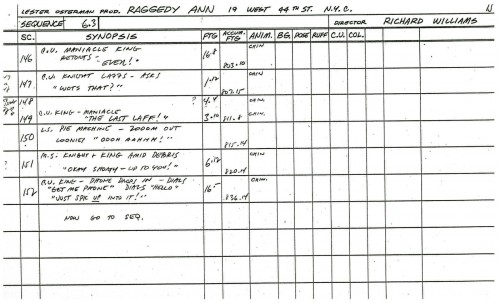 LESTER OSTERMAN PROD. RAGGEDY ANN 19 WEST 44TH ST. N.Y.C. 13
SEQUENCE 6.3 DIRECTOR RICHARD WILLIAMS
SC. SYNOPSIS FTG ACCUM. FTG ANIM. B.G. POSE RUFF C.U. COL.
146 C.U. MANIACLE KING
- EVER!" 16-8 803-10 CHIN
147 C.U. KNIGHT LAFFS - ASKS
"WOTS THAT?" 1-12 CHIN
148 ? 4-4
149 C.U. KING - MANIACLE
"THE LAST LAFF!" 3-10 811-8 CHIN.
150 L.S. PIE MACHINE - ZOOOM OUT
LOONIES "OOOH AAHHH!" 815-14
151 M.S. KNIGHT + KING AMID DEBRIS
"OKAY SHORTY - UP TO YOU!" 6-12 820-14 CHIN
152 C.U. KING - PHONE DROPS IN - DIALS
"GET ME PHONE" DIALS "HELLO"
"JUST SPK UP INTO IT!" 16- 836-14 CHIN.
NOW GO TO SEQ.